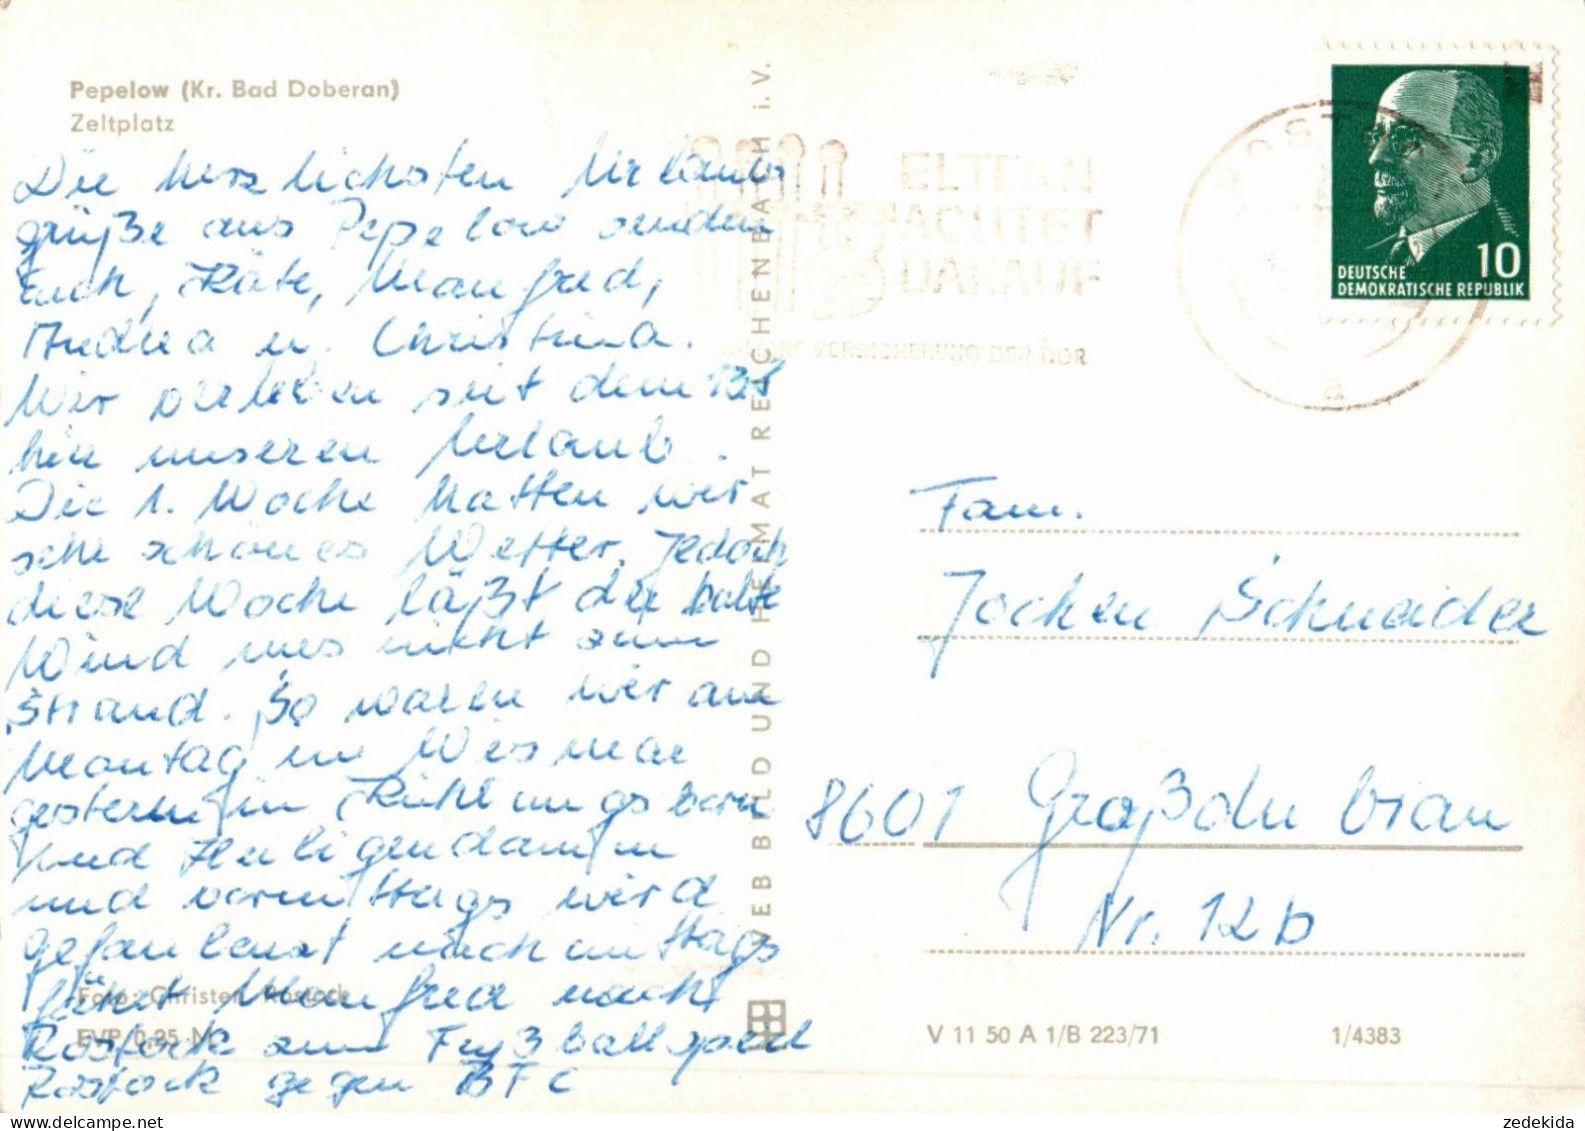 Pepelow (Kr. Bad Doberan)
Zeltplatz
Die herzlichsten Urlaubs
grüße aus Pepelow senden
Euch, Käte, Manfred,
Andrea u. Christina.
Wir verleben seit dem
hier unseren Urlaub.
Die 1. Woche hatten wir
sehr schönes Wetter. Jedoch
diese Woche läßt der kalte
Wind uns nicht zum
Strand. So waren wir am
Montag in Wismar
gestern in Kühlungsborn
und Heiligendamm
und vormittags wird
gefaulenzt nachmittags
fährt Manfred nach
Rostock zum Fußballspiel
Rostock gegen BFC
Foto: Christen, Rostock
EVP 0,25 M
VEB BILD UND HEIMAT REICHENBACH i. V.
ELTERN
ACHTET
DARAUF
VERSICHERUNG DER DDR
a
10
DEUTSCHE
DEMOKRATISCHE REPUBLIK
Fam.
Jochen Schneider
8601 Großdubrau
Nr. 12b
V 11 50 A 1/B 223/71
1/4383
zedekida